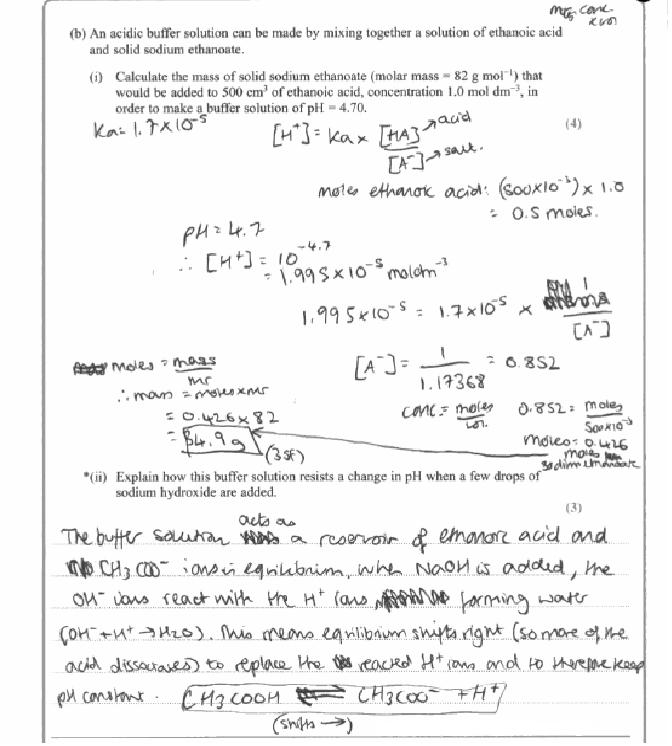 mrg conc
(b) An acidic buffer solution can be made by mixing together a solution of ethanoic acid
and solid sodium ethanoate.
(i) Calculate the mass of solid sodium ethanoate (molar mass = 82 g mol⁻¹) that
would be added to 500 cm³ of ethanoic acid, concentration 1.0 mol dm⁻³, in
order to make a buffer solution of pH = 4.70.
(4)
Ka = 1.7 × 10⁻⁵
[H⁺] = Ka × [HA] → acid
[A⁻] → salt.
moles ethanoic acid: (500×10⁻³) × 1.0
= 0.5 moles.
pH = 4.7
∴ [H⁺] = 10⁻⁴·⁷
= 1.995 × 10⁻⁵ moldm⁻³
1.995 × 10⁻⁵ = 1.7 × 10⁻⁵ × 1
[A⁻]
[A⁻] = 1 = 0.852
1.17368
moles = mass
mr
∴ mass = moles × mr
= 0.426 × 82
= 34.9g
(3sf)
conc = moles
vol.
0.852 = moles
500×10⁻³
moles = 0.426
moles
sodium ethanoate
*(ii) Explain how this buffer solution resists a change in pH when a few drops of
sodium hydroxide are added.
(3)
The buffer solution acts as a reservoir of ethanoic acid and
CH3COO⁻ ions in equilibrium, when NaOH is added, the
OH⁻ ions react with the H⁺ ions forming water
(OH⁻ + H⁺ → H2O). This means equilibrium shifts right (so more of the
acid dissociates) to replace the reacted H⁺ ions and to therefore keep
pH constant. CH3COOH ⇌ CH3COO⁻ + H⁺
(shifts →)